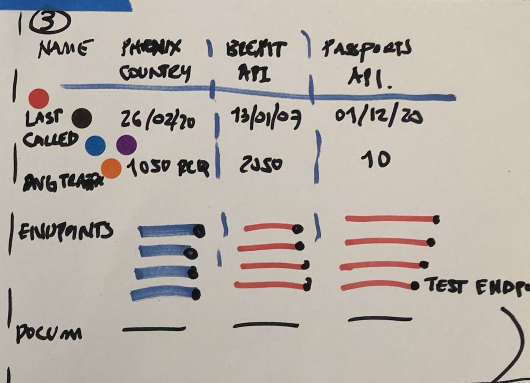 3
NAME PHOENIX COUNTRY BREXIT API PASSPORTS API.
LAST CALLED 26/02/20 13/01/07 01/12/20
AVG TRAFFIC 1050 2050 10
ENDPOINTS
TEST ENDPO
DOCUM